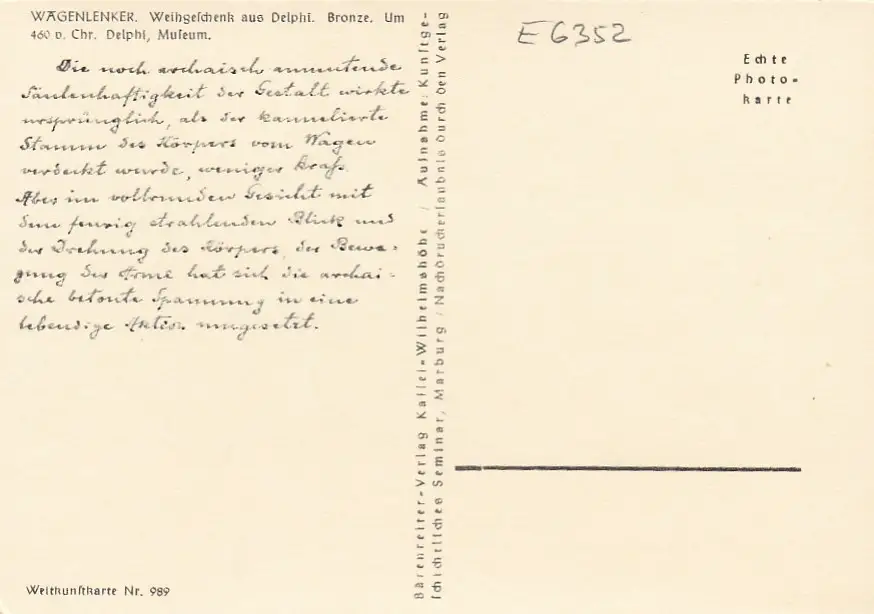 WAGENLENKER. Weihgeſchenk aus Delphi. Bronze. Um
460 v. Chr. Delphi, Muſeum.
Die noch archaisch anmutende
Säulenhaftigkeit der Gestalt wirkte
ursprünglich, als der kannelierte
Stamm des Körpers vom Wagen
verdeckt wurde, weniger kraſs.
Aber im vollrunden Gesicht mit
dem feurig strahlenden Blick und
der Drehung des Körpers, der Bewe-
gung der Arme hat sich die archai-
sche betonte Spannung in eine
lebendige Aktion umgesetzt.
Weltkunſtkarte Nr. 989
Bärenreiter-Verlag Kaſſel-Wilhelmshöhe / Aufnahme: Kunſtge-
ſchichtliches Seminar, Marburg / Nachdruckerlaubnis Durch Den Verlag
E 6352
Echte
Photo-
karte